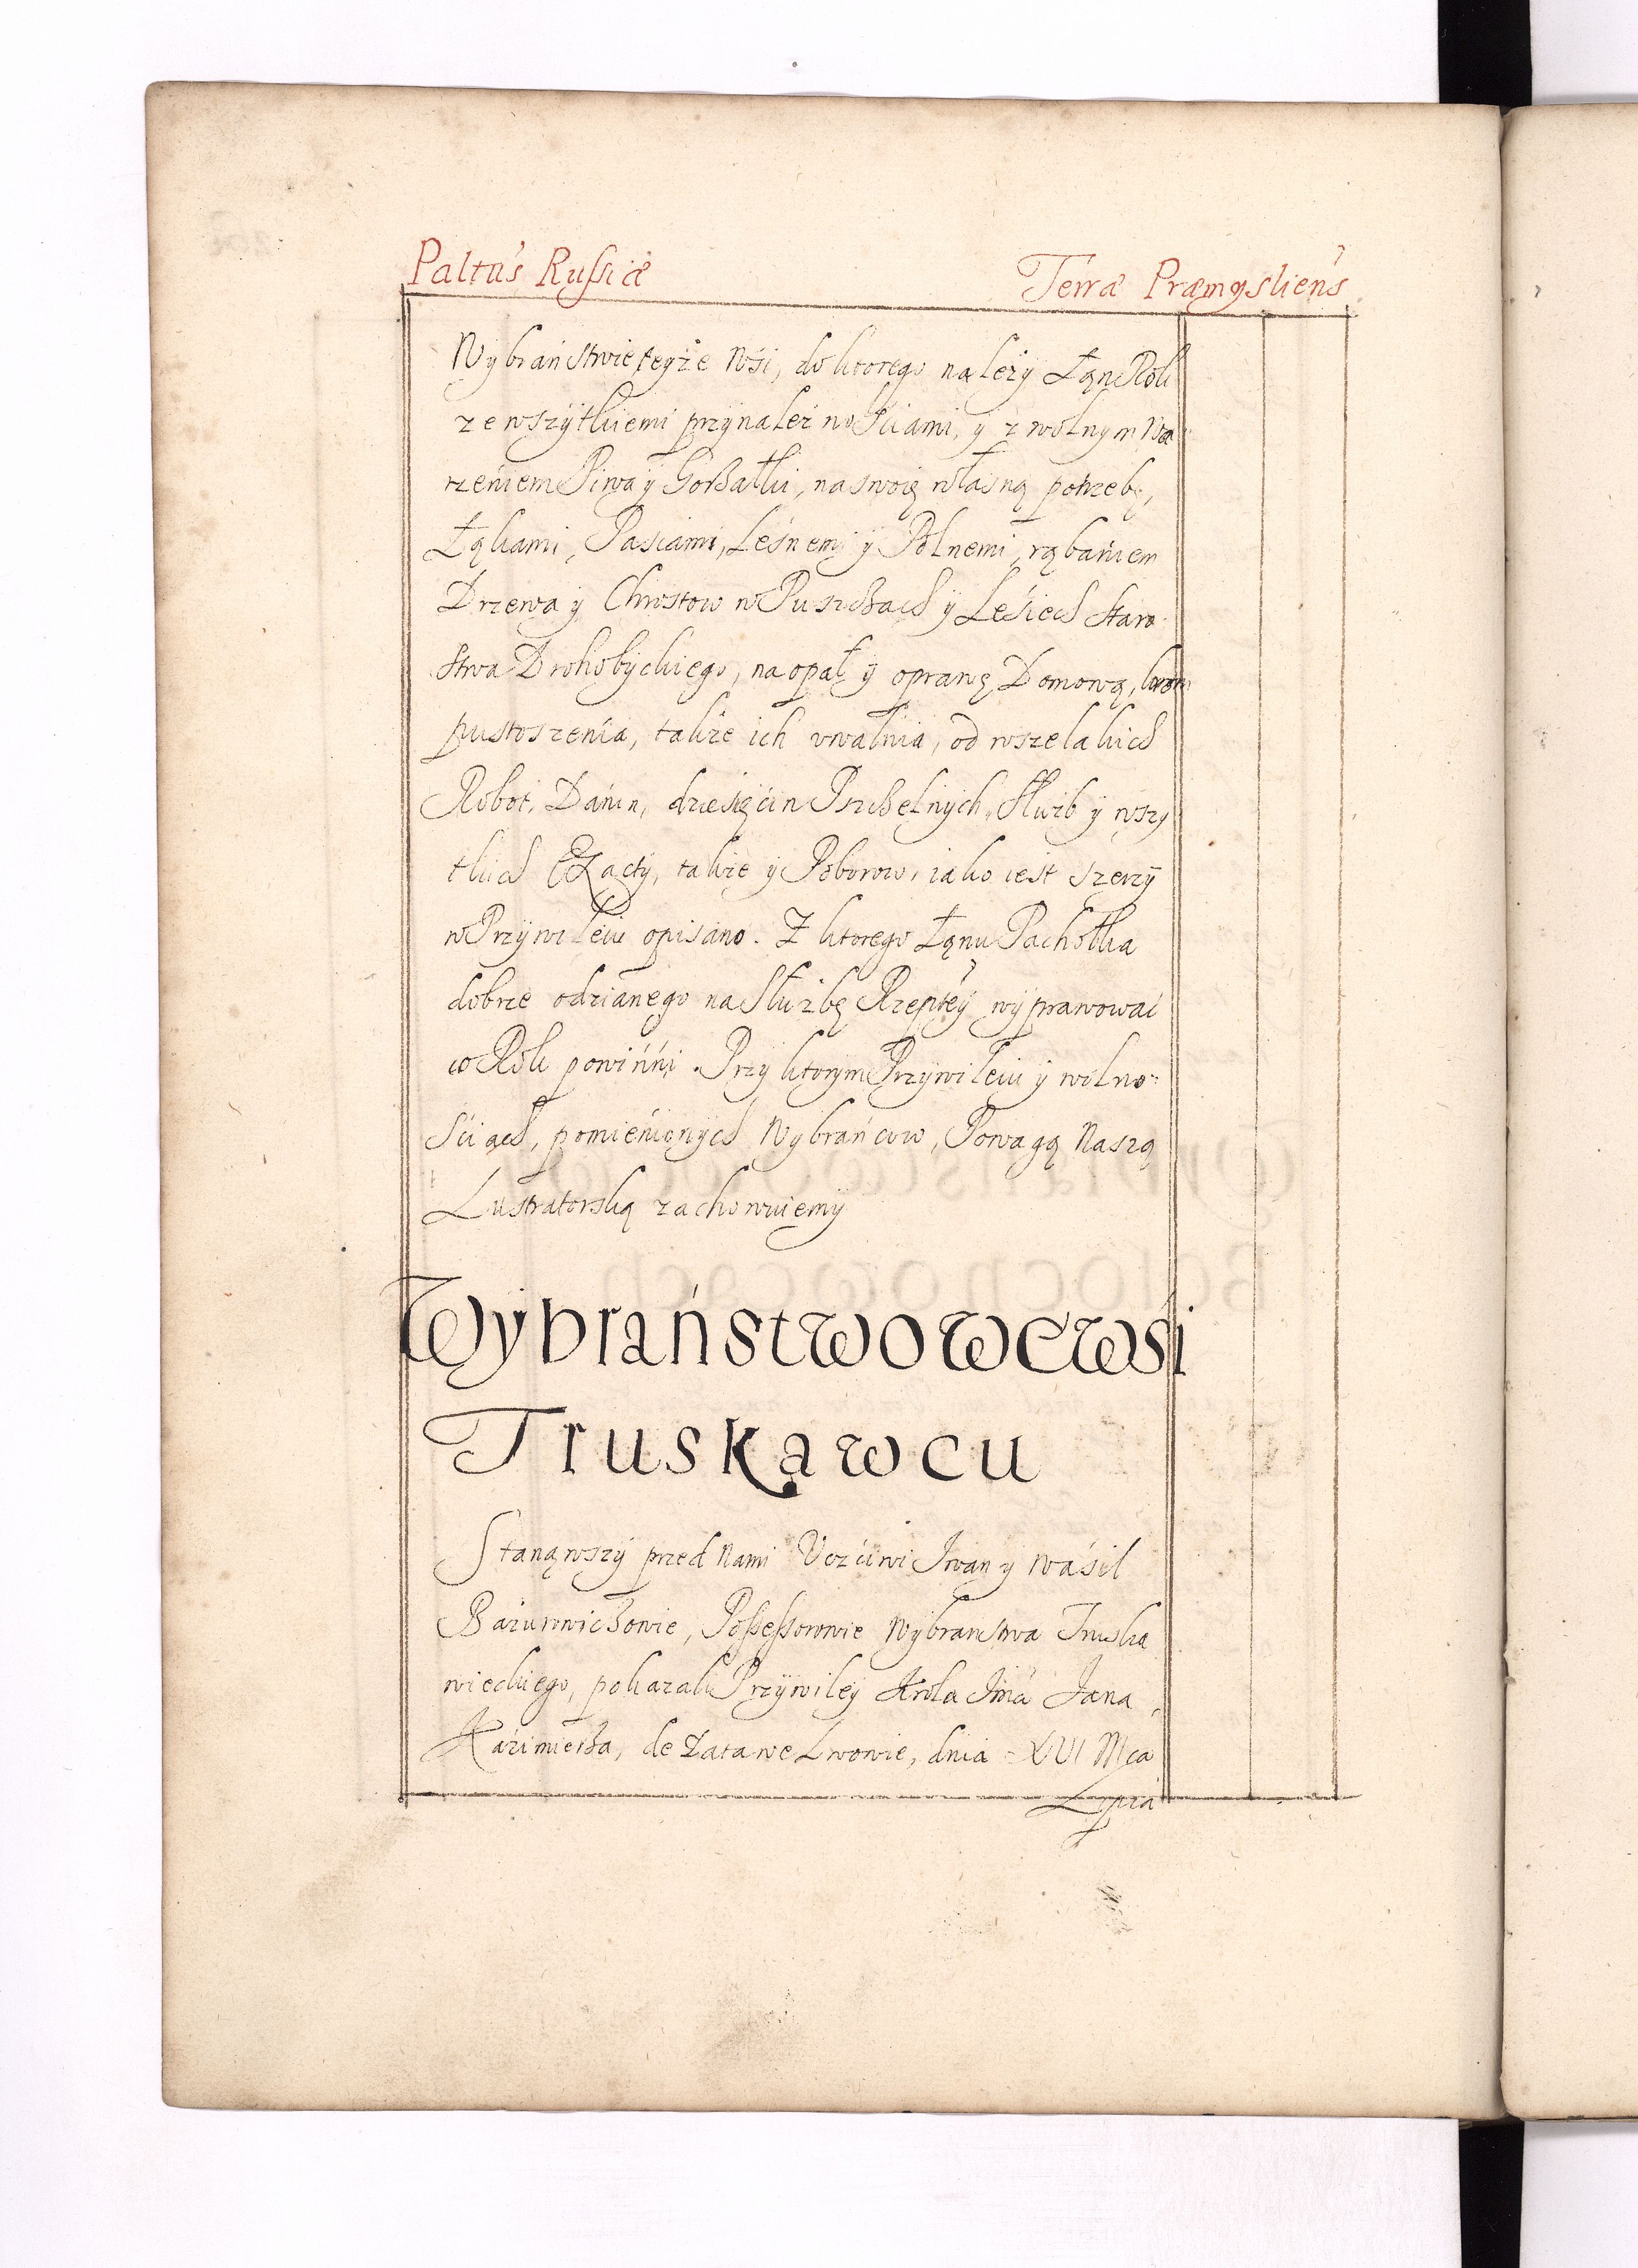 Paltus Russiæ
Terræ Præmysliens
Wybraństwie teyże Wśi, do ktorego należy Łąn Roli
ze wszytkiemi przynależnościami, y z wolnym Wa
rzeniem Piwa y Gorzałki, na swoię własną potrzebę,
Łąkami, Pasiami, Leśnemi y Polnemi, rąbaniem
Drzewa y Chrostow w Puszczach y Leśiech Staro
stwa Drohobyckiego, na opał y oprawę Domową, krom
pustoszenia, także ich uwalnia, od wszelakich
Robot, Danin, dzieśięćin Pszczelnych, Służb y wszy
tkich Exacty, także y Poborow, iako iest szerzy
w Przywileiu opisano. Z ktorego Łąnu Pachołka
dobrze odzianego na Służbę Rzeptey wyprawować
co Rok powinni. Przy ktorym Przywileiu y wolno
śćiach, pomienionych Wybrańcow, Powagą Naszą
Lustratorską zachowuiemy
Wybraństwo we Wśi
Truskawcu
Stanąwszy przed Nami Uczciwi Iwan y Waśil
Bażurowiczowie, Possessorowie Wybranstwa Truska
wieckiego, pokazali Przywiley Krola Jmci Jana
Kaźimierza, de Data we Lwowie, dnia XVI Mca
Lipca